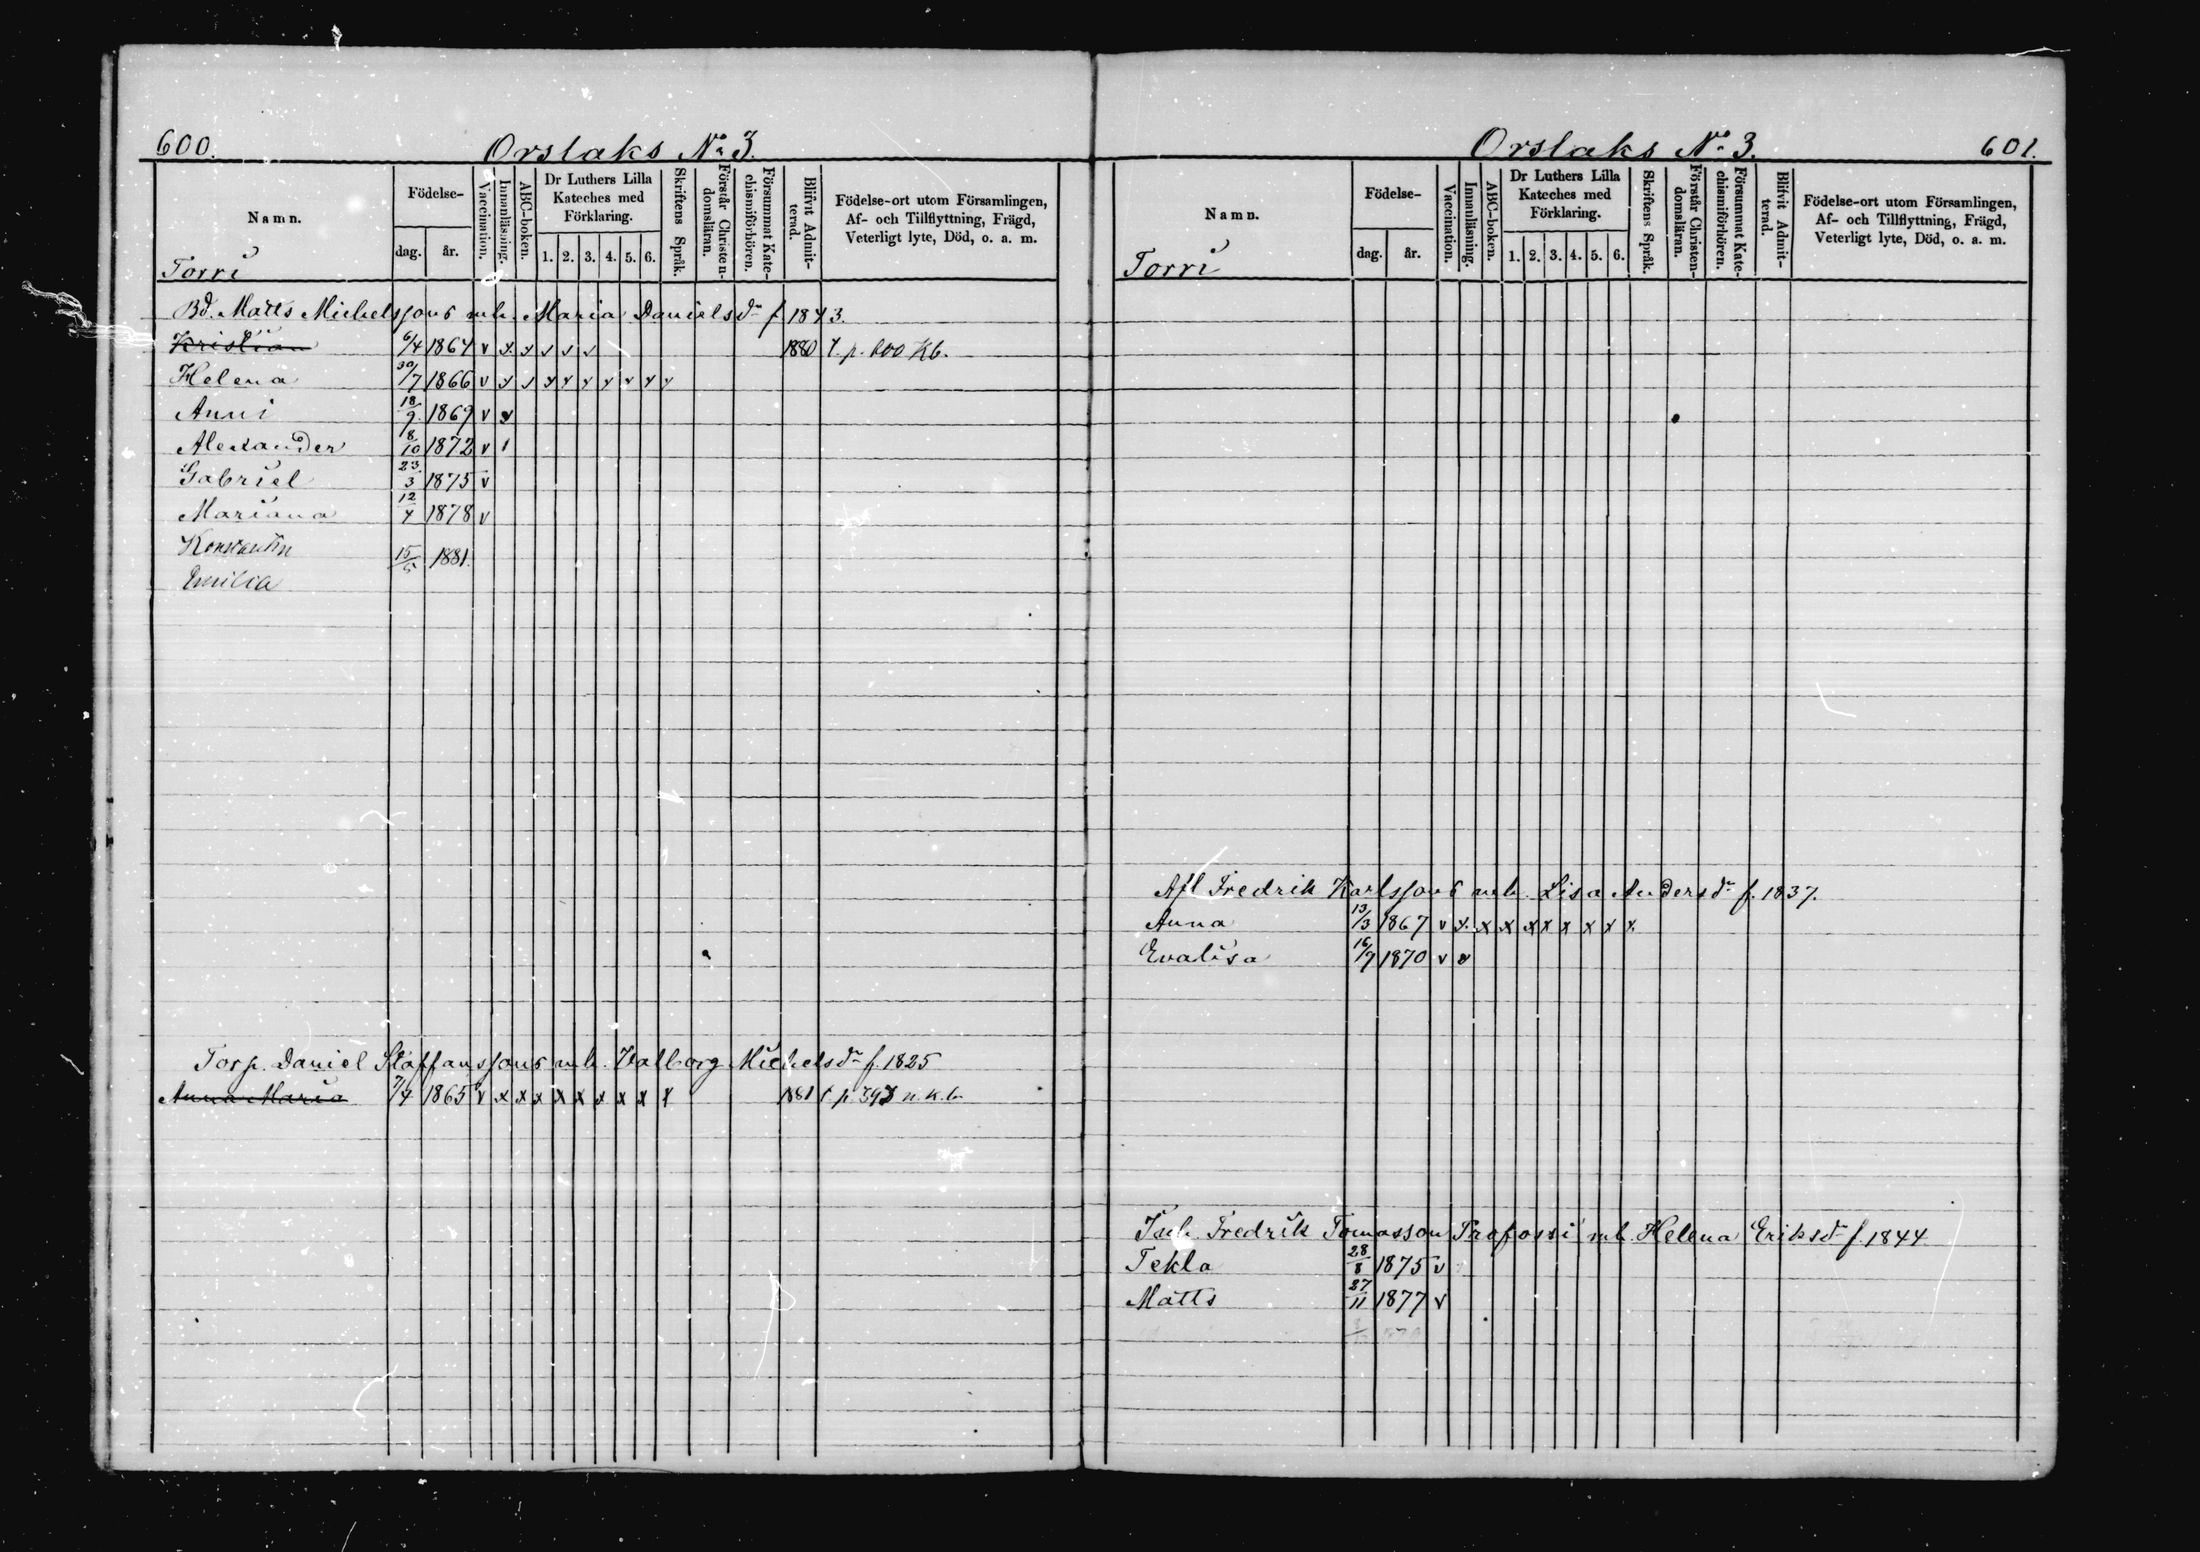 600. Orslaks No 3.
Namn. Födelse- dag. år. Vaccination. Innanläsning. ABC-boken. Dr Luthers Lilla Kateches med Förklaring. 1. 2. 3. 4. 5. 6. Skriftens Språk. Förstår Christen-domsläran. Försummat Kate-chismiförhören. Blifvit Admit-terad. Födelse-ort utom Församlingen, Af- och Tillflyttning, Frägd, Veterligt lyte, Död, o. a. m.
Torri
Bd. Matts Michelssons mh. Maria Danielsdr f 1843.
Kristian 6/4 1864 v x x x x x 1880 T. p. 600 Kb.
Helena 30/7 1866 v x x x x x x x x x
Anni 18/9 1869 v x
Alexander 8/10 1872 v 1
Gabriel 23/3 1875 v
Mariana 12/4 1878 v
Konstantin 15/5 1881.
Emilia
Torp. Daniel Staffanssons mh. Valborg Michelsdr f. 1825
Anna Maria 7/4 1865 v x x x x x x x x x 1881 t. p 393 n. k. b.
Orslaks No 3. 601.
Namn. Födelse- dag. år. Vaccination. Innanläsning. ABC-boken. Dr Luthers Lilla Kateches med Förklaring. 1. 2. 3. 4. 5. 6. Skriftens Språk. Förstår Christen-domsläran. Försummat Kate-chismiförhören. Blifvit Admit-terad. Födelse-ort utom Församlingen, Af- och Tillflyttning, Frägd, Veterligt lyte, Död, o. a. m.
Torri
Afl Fredrik Karlssons mh. Lisa Andersdr f. 1837.
Anna 13/3 1867 v x x x x x x x x x
Evalisa 16/9 1870 v x
Fredrik Tomasson Profossi mh. Helena Eriksdr f. 1844.
Tekla 28/8 1875 v
Matts 27/11 1877 v